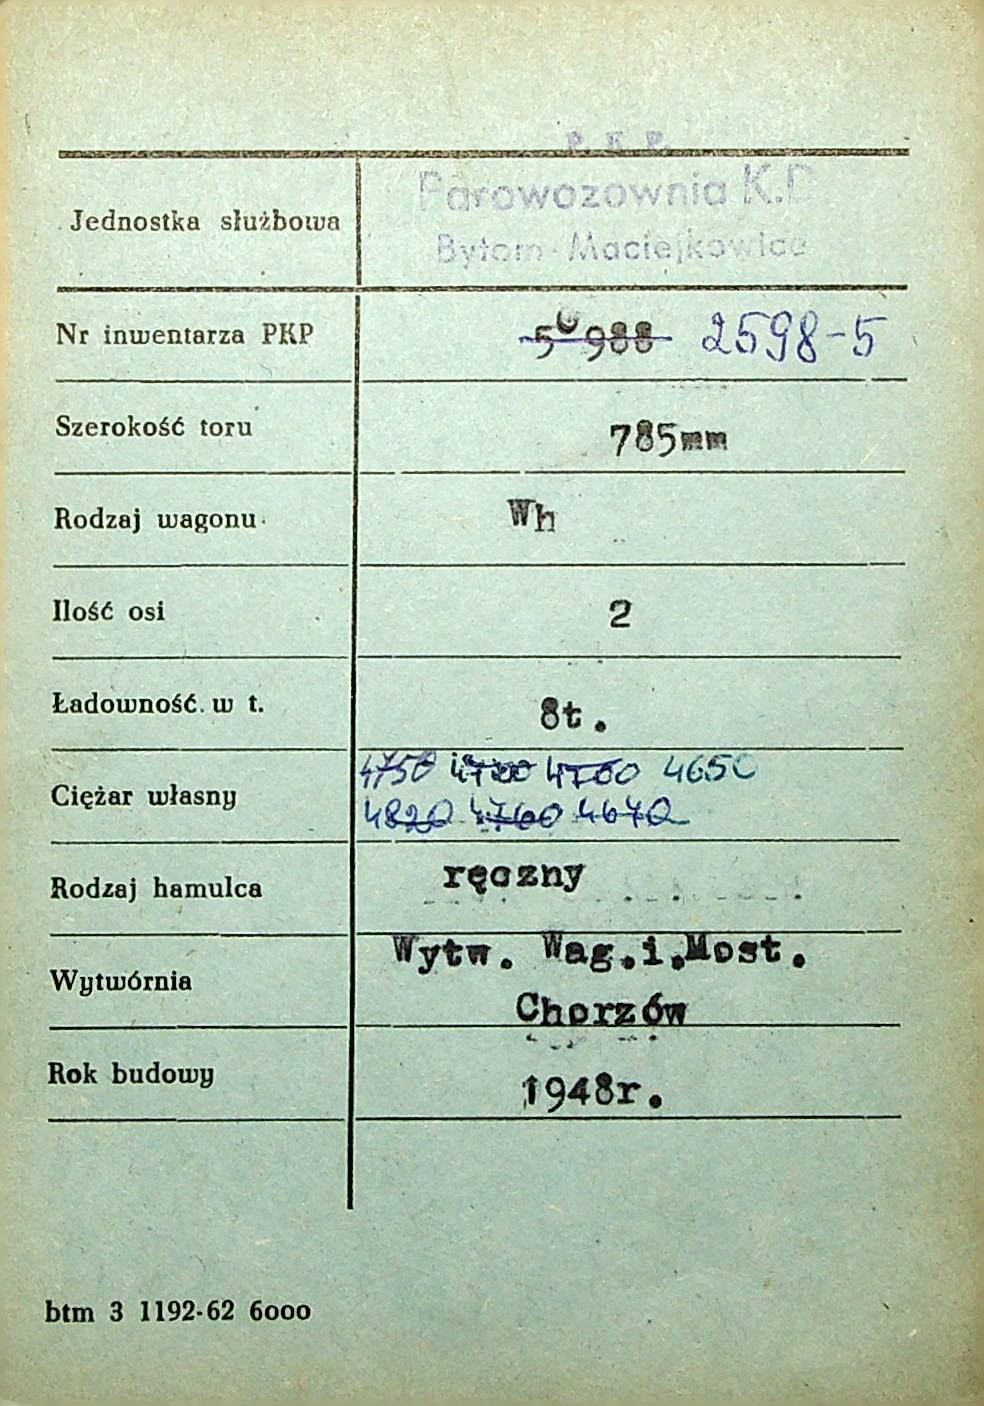 P. K. P.
Parowozownia K.D.
Bytom-Maciejkowice
Jednostka służbowa
Nr inwentarza PKP 988 2598-5
Szerokość toru 785mm
Rodzaj wagonu Wh
Ilość osi 2
Ładowność w t. 8t.
4750 4700 4650
Ciężar własny
4820 4760 4670
Rodzaj hamulca ręczny
Wytw. Wag.i.Most.
Wytwórnia
Chorzów
Rok budowy 1948r.
btm 3 1192-62 6000